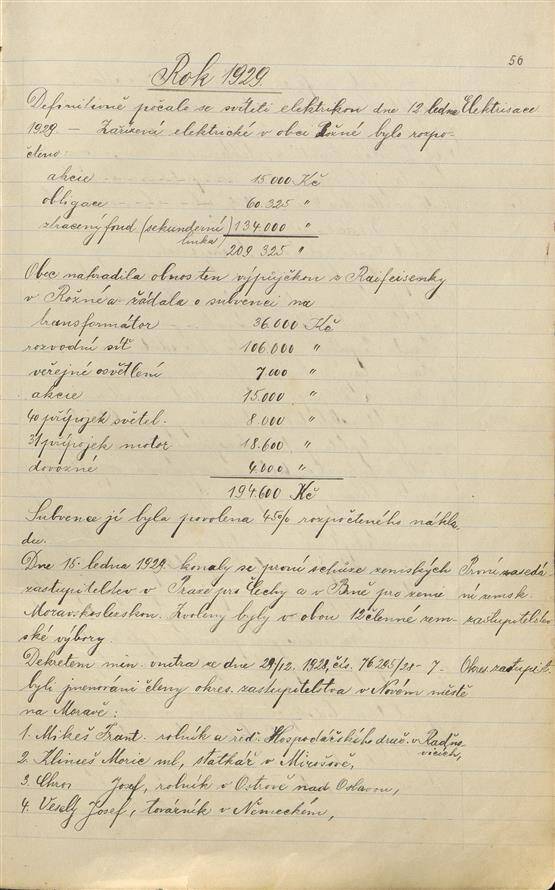 56
Rok 1929.
Definitivně počalo se svítiti elektrikou dne 12. ledna Elektrisace
1929. — Zařízení elektrické v obci Rožné bylo rozpo-
čteno:
akcie 15.000 Kč
obligace 60.325 "
ztracený fond (sekunderní linka) 134.000 "
209.325 "
Obec nahradila obnos ten výpůjčkou z Raifeisenky
v Rožné a žádala o subvenci na
transformátor 36.000 Kč
rozvodní síť 106.000 "
veřejné osvětlení 7.000 "
akcie 15.000 "
40 přípojek světel. 8.000 "
31 přípojek motor 18.600 "
dovozné 4.000 "
194.600 Kč
Subvence jí byla povolena 45% rozpočteného nákla-
du.
Dne 15. ledna 1929 konaly se první schůze zemských První zasedá-
zastupitelstev v Praze pro Čechy a v Brně pro zemi ní zemsk.
Moravskoslezskou. Zvoleny byly v obou 12členné zem- zastupitelstev
ské výbory
Dekretem min. vnitra ze dne 29./12. 1928, čís. 76295/28-7- Okres. zastupit.
byli jmenováni členy okres. zastupitelstva v Novém městě
na Moravě:
1. Mikeš Frant. rolník a řed. Hospodářského druž. v Radňo-
vicích,
2. Klineš Moric ml, statkář v Mirošově,
3. Josef, rolník v Ostrově nad Oslavou,
4. Veselý Josef, továrník v Německém,